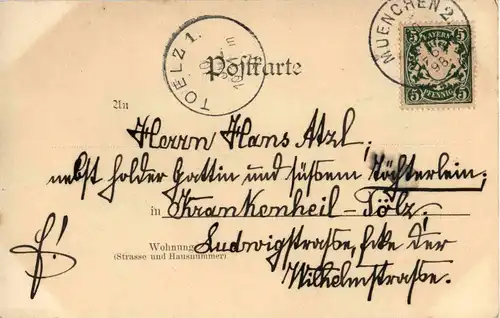 TOELZ 1.
MUENCHEN 2
BAYERN
5 5
5 PFENNIG 5
Postkarte
An
Herrn Hans Atzl,
nebst holder Gattin und süssem Töchterlein;
in Krankenheil-Tölz.
Wohnung Ludwigstrasse, Ecke der
(Strasse und Hausnummer)
Wilhelmstrasse.